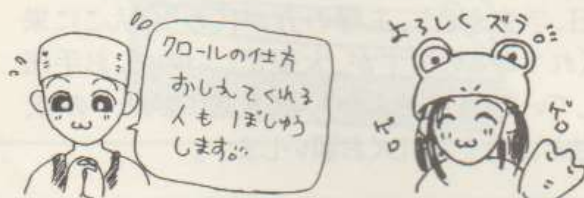 クロールの仕方
おしえてくれる
人も ぼしゅう
します。
よろしくズラ。
ケロ
ケロ